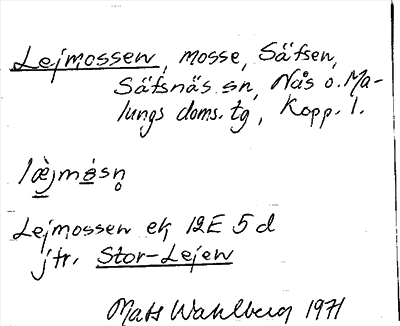 Lejmossen, mosse, Säfsen,
Säfsnäs sn, Nås o. Ma-
lungs doms. tg, Kopp. l.
læ̀jmòsn̥
Lejmossen ek 12E 5d
jtr. Stor-Lejen
Mats Wahlberg 1971